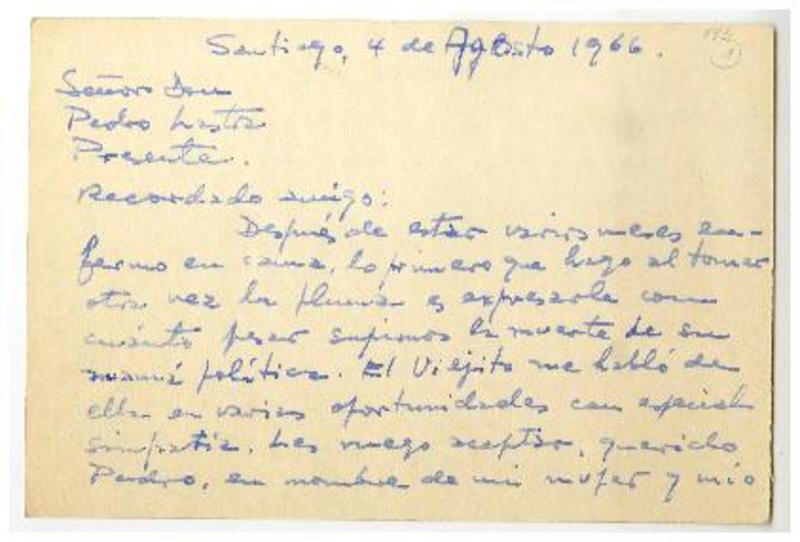 Santiago, 4 de Agosto 1966.
Señor Don
Pedro Lastra
Presente.
Recordado amigo:
Después de estar varios meses en-
fermo en cama, lo primero que hago al tomar
otra vez la pluma es expresarle con
cuánto pesar supimos la muerte de su
mamá política. El Viejito me habló de
ella en varias oportunidades con especial
simpatía. Les ruego aceptar, querido
Pedro, en nombre de mi mujer y mío